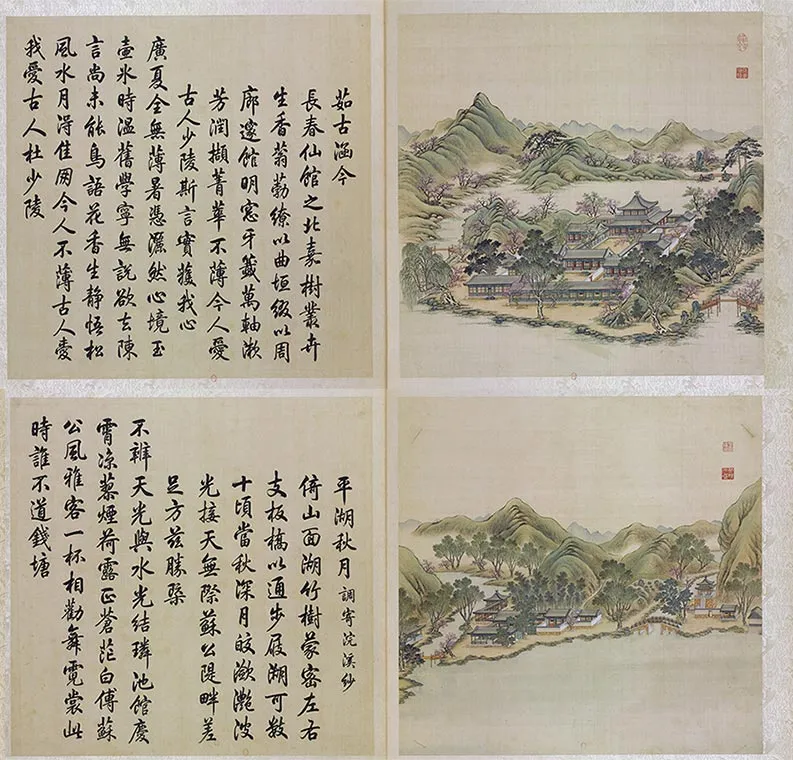 茹古涵今
長春仙館之北嘉樹叢卉
生香蓊葧繚以曲垣綴以周
廊邃館明窓牙籤萬軸漱
芳潤擷菁華不薄今人愛
古人少陵斯言實獲我心
廣夏全無薄暑憑灑然心境玉
壺氷時温舊學寧無說欲去陳
言尚未能鳥語花香生靜悟松
風水月得佳朋今人不薄古人愛
我愛古人杜少陵
平湖秋月 調寄浣溪紗
倚山面湖竹樹蒙密左右
支板橋以通步屧湖可數
十頃當秋深月皎瀲灩波
光接天無際蘇公隄畔差
足方茲勝槩
不辨天光與水光結璘池館慶
霄涼蓼煙荷露正蒼茫白傅蘇
公風雅客一杯相勸舞霓裳此
時誰不道錢塘